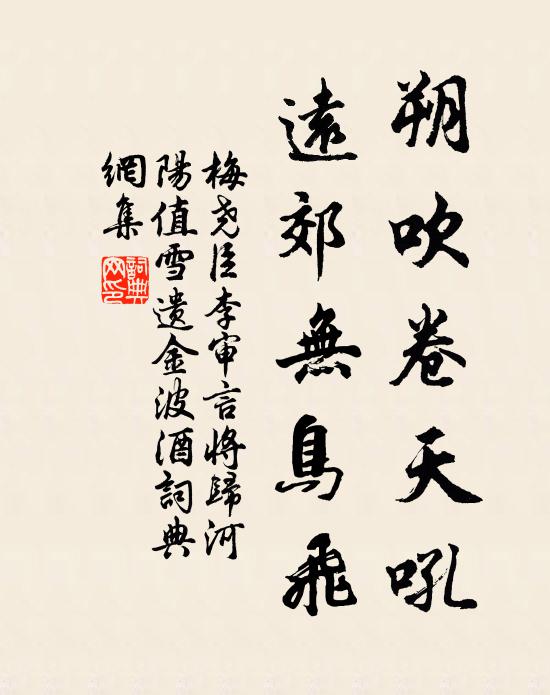 朔吹卷天吼
遠郊無鳥飛
梅堯臣李审言將歸河
陽值雪遗金波酒詞典
網集
詞典
网印